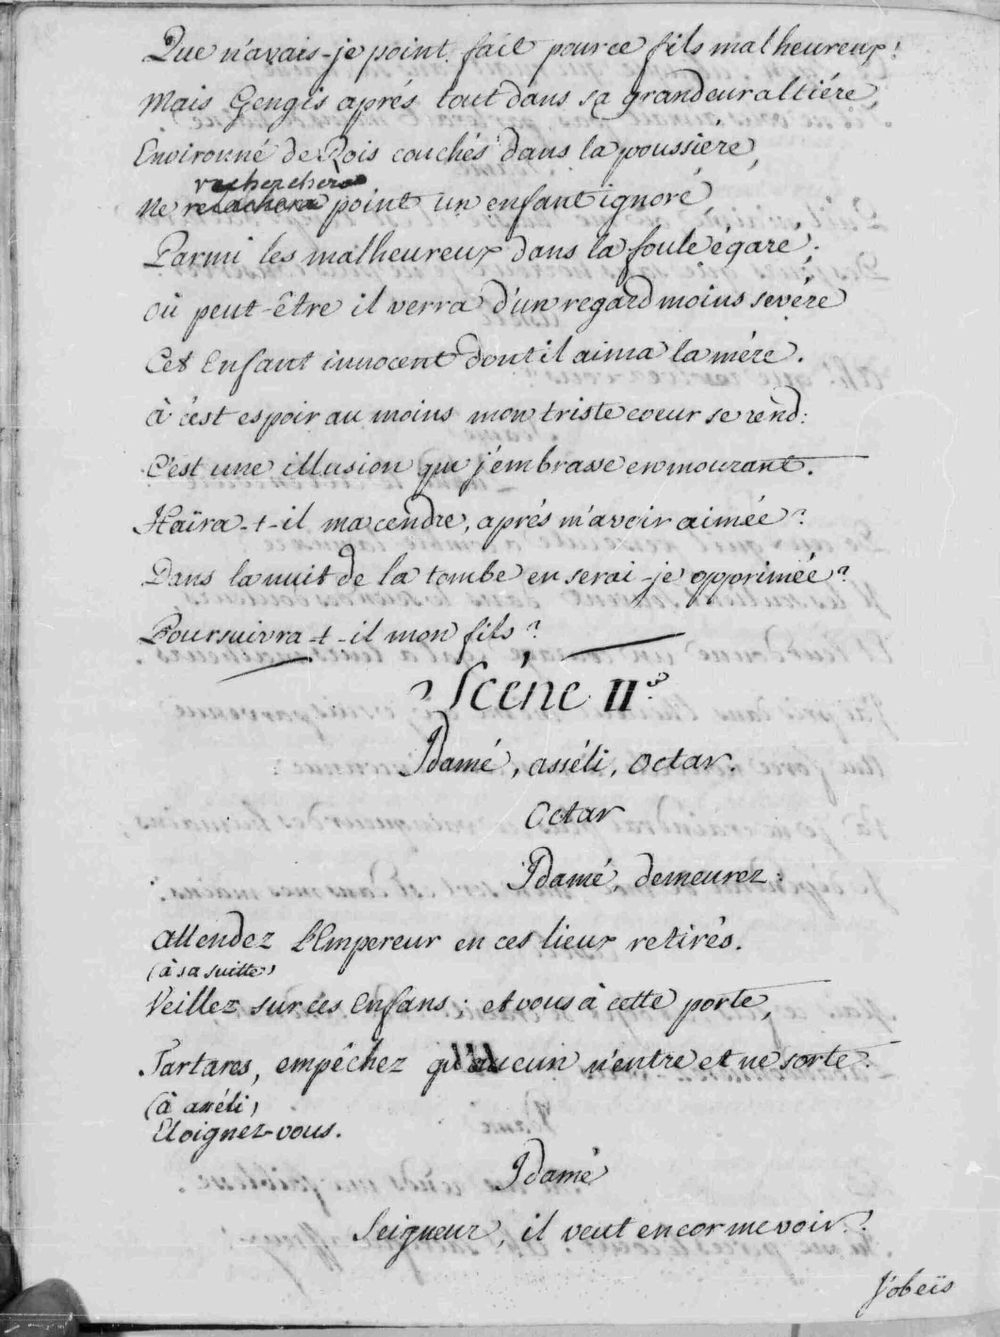 Que n'avais-je point fait pour ce fils malheureux!
Mais Gengis aprés tout dans sa grandeur altiére,
Environné de Rois couchés dans la poussiére,
recherchera
Ne relachera point un enfant ignoré,
Parmi les malheureux dans la foule égaré;
où peut-être il verra d'un regard moins sevére
Cet Enfant innocent dont il aima la mére.
à c'est espoir au moins mon triste coeur se rend:
C'est une illusion que j'embrasse en mourant.
Haïra-t-il ma cendre, aprés m'avoir aimée?
Dans la nuit de la tombe en serai-je opprimée?
Poursuivra-t-il mon fils?
Scéne II.e
Idamé, asséli, octar.
Octar
Idamé, demeurez:
attendez l'Empereur en ces lieux retirés.
(à sa suitte)
Veillez sur ces Enfans; et vous à cette porte,
Tartares, empêchez qu'aucun n'entre et ne sorte.
(à asséli)
Eloignez-vous.
Idamé
Seigneur, il veut encor me voir?
J'obeïs